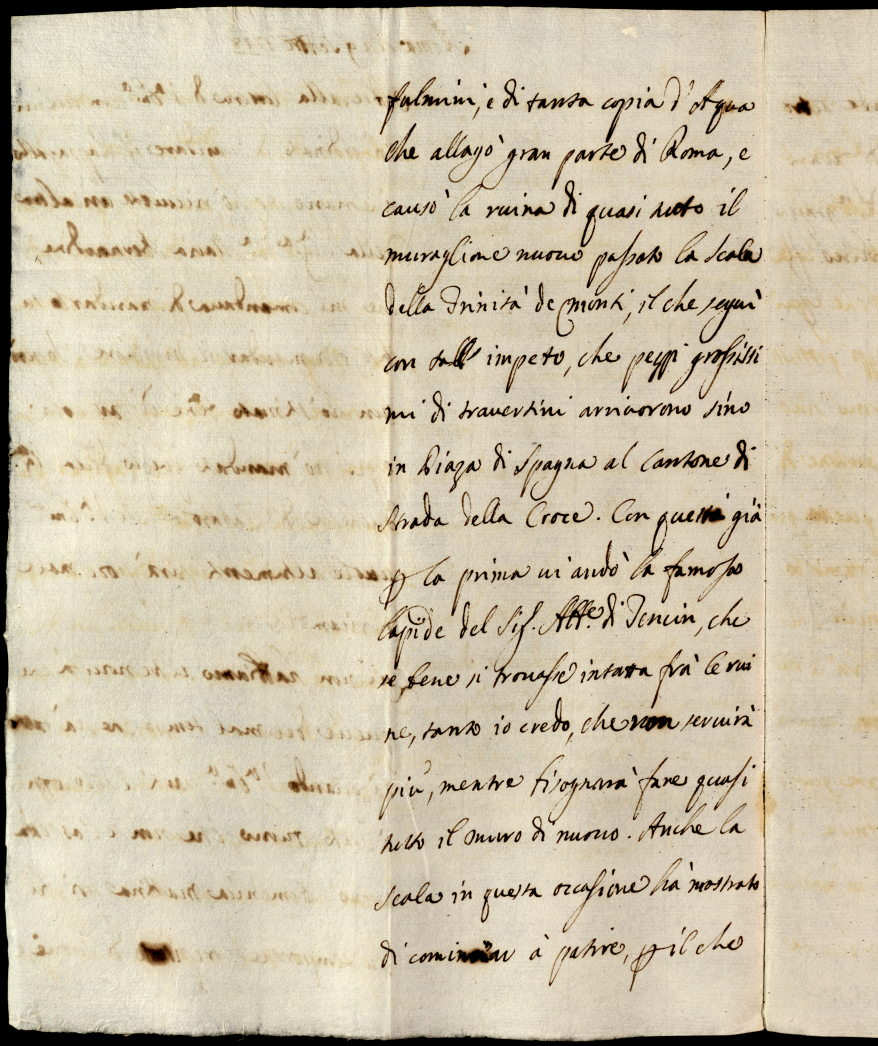 fulmini, e di tanta copia d'Aqua
che allagò gran parte di Roma, e
causò la ruina di quasi tutto il
muraglione nuovo passato la scala
della Trinità de Monti, il che seguì
con tall impeto, che pezzi grossissi
mi di travertini arrivorono sino
in Piaza di Spagna al Cantone di
strada della Croce. Con questi già
la prima vi andò la famosa
lapide del Sig. Abb.e di Tencin, che
se bene si trovasse intatta frà le rui
ne, tanto io credo, che non servirà
più, mentre bisognarà fare quasi
tutto il muro di nuovo. Anche la
scala in questa occasione hà mostrato
di cominciar à patire, il che